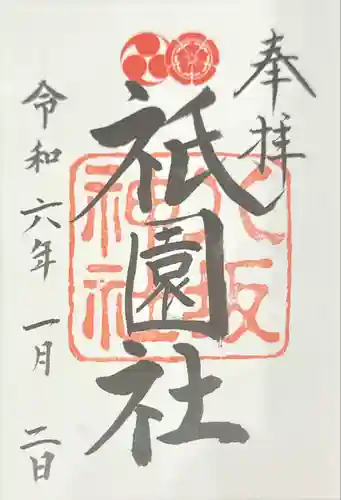 奉拝
祇園社
八坂
神社
令和六年一月二日